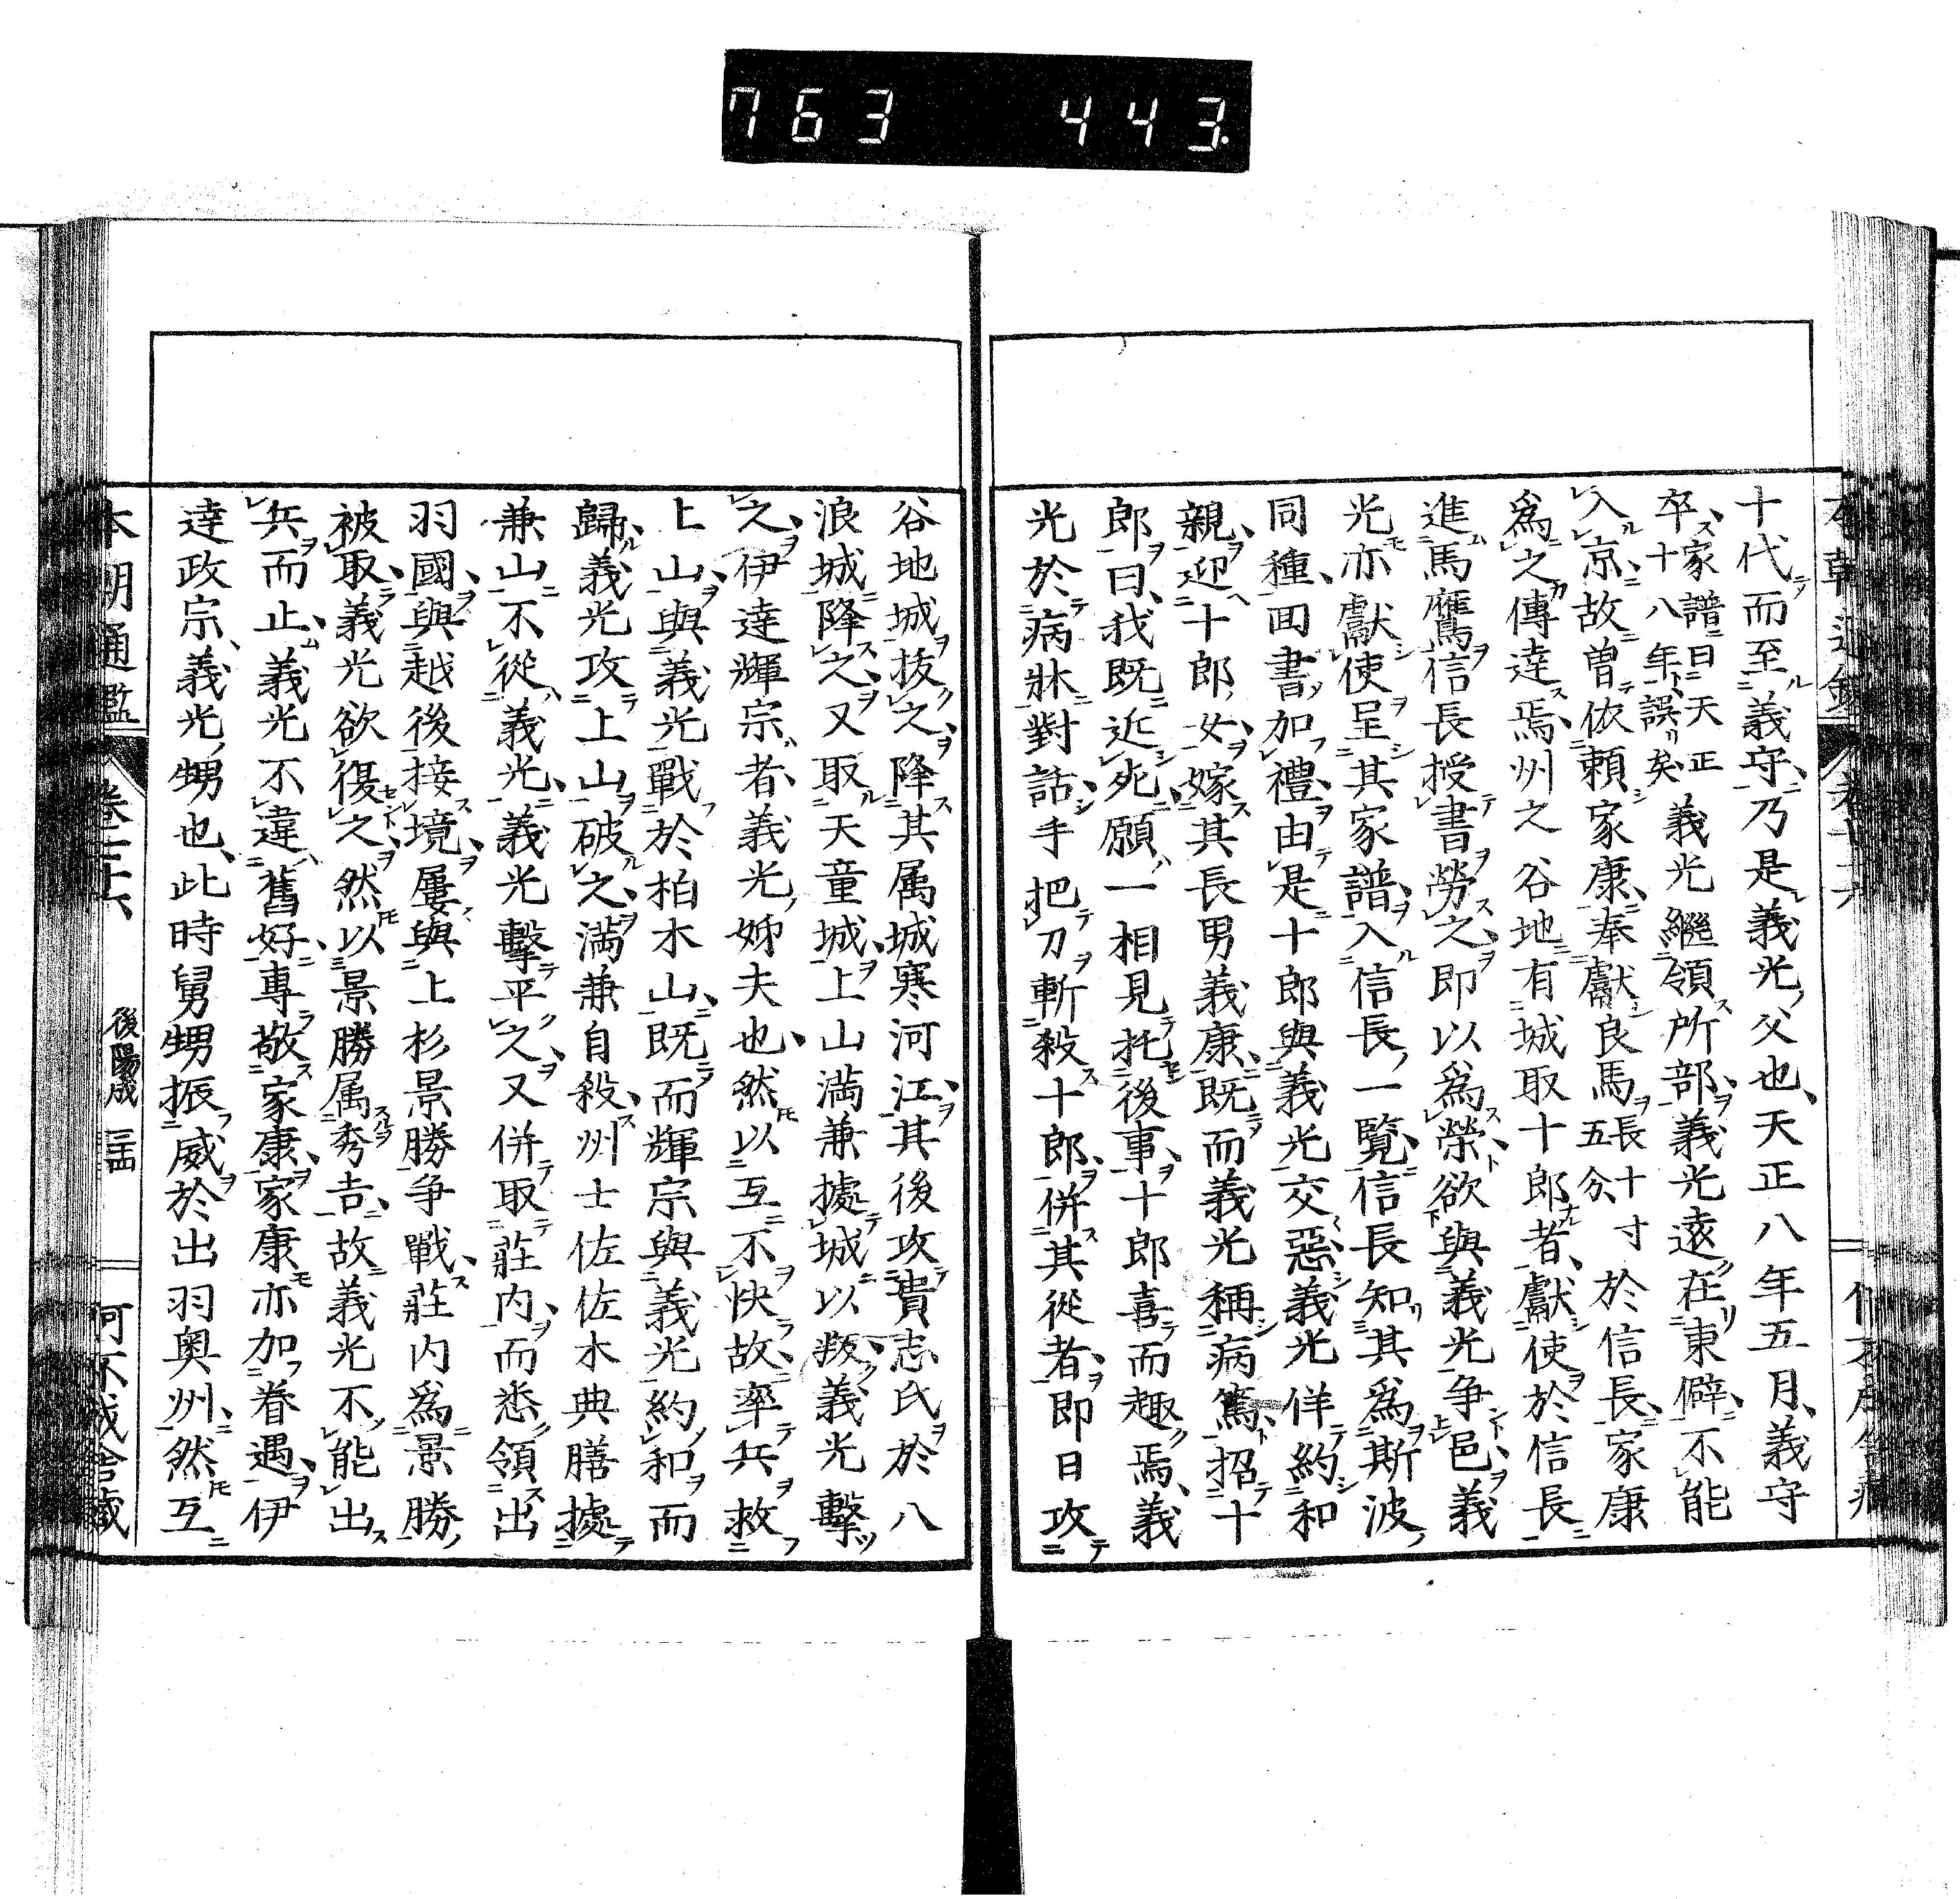 763 443
十代而至義守乃是義光父也天正八年五月義守
卒家譜曰天正十八年誤矣義光繼領所部義光遠在東僻不能
入京故曽依頼家康奉獻良馬長十寸五分於信長家康
為之傳達焉州之谷地有城取十郎者獻使於信長
進馬鷹信長授書勞之即以為榮欲與義光争邑義
光亦獻使呈其家譜入信長一覧信長知其為斯波
同種回書加禮由是十郎與義光交惡義光佯約和
親迎十郎女嫁其長男義康既而義光稱病篤招十
郎曰我既近死願一相見托後事十郎喜而趣焉義
光於病牀對話手把刀斬殺十郎併其従者即日攻
谷地城抜之降其属城寒河江其後攻貴志氏於八
浪城降之又取天童城上山満兼據城以叛義光擊
之伊達輝宗者義光姉夫也然以互不快故率兵救
上山與義光戰於柏木山既而輝宗與義光約和而
歸義光攻上山破之満兼自殺州士佐佐木典膳據
兼山不從義光義光擊平之又併取莊内而悉領出
羽國與越後接境屢與上杉景勝争戰莊内為景勝
被取義光欲復之然以景勝属秀吉故義光不能出
兵而止義光不違舊好專敬家康家康亦加眷遇伊
達政宗義光甥也此時舅甥振威於出羽奥州然互
本朝通鑑
後陽成 三